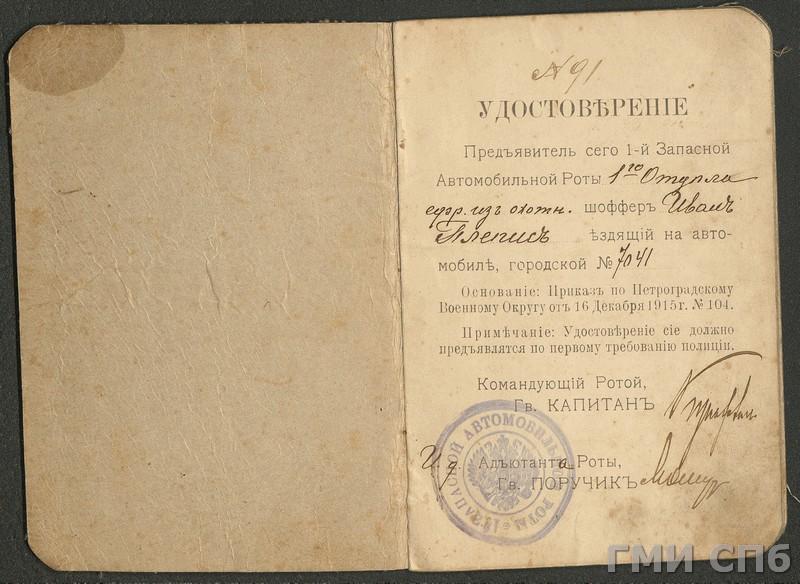 № 91
УДОСТОВѢРЕНІЕ
Предъявитель сего 1-й Запасной
Автомобильной Роты 1го Отдѣла
ефр. изъ охотн. шофферъ Иванъ
ѣздящій на авто-
мобилѣ, городской № 7041
Основаніе: Приказъ по Петроградскому
Военному Округу отъ 16 Декабря 1915 г. № 104.
Примѣчаніе: Удостовѣреніе сіе должно
предъявлятся по первому требованію полиціи.
Командующій Ротой,
Гв. КАПИТАНЪ
И. д. Адъютанта Роты,
Гв. ПОРУЧИКЪ
ЗАПАСНОЙ АВТОМОБИЛЬНОЙ РОТЫ
ГМИ СПб